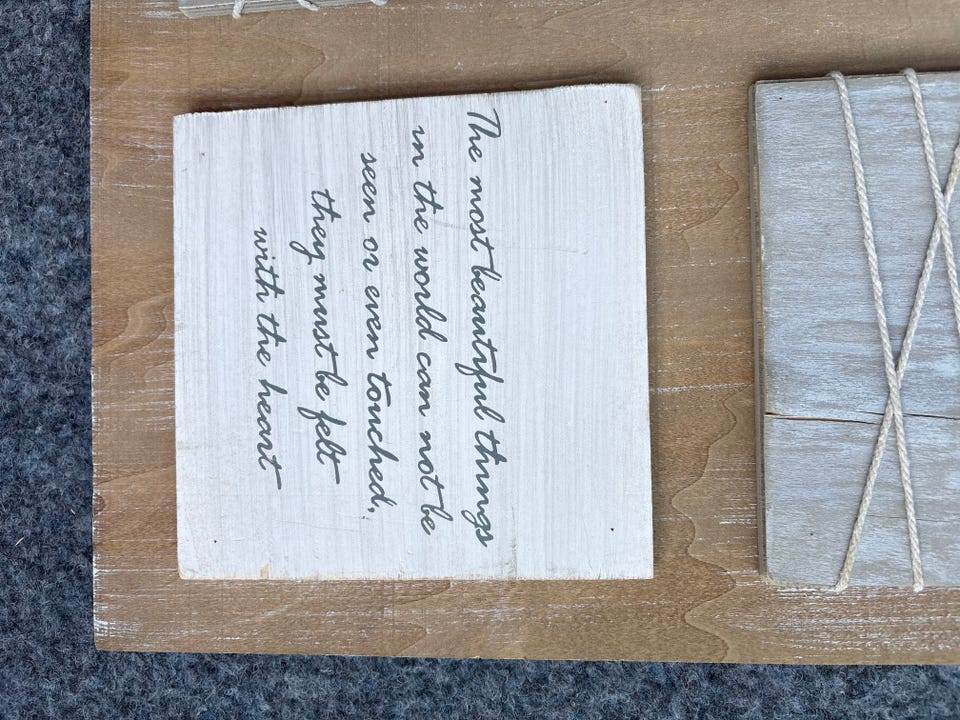 The most beautiful things
in the world can not be
seen or even touched,
they must be felt
with the heart